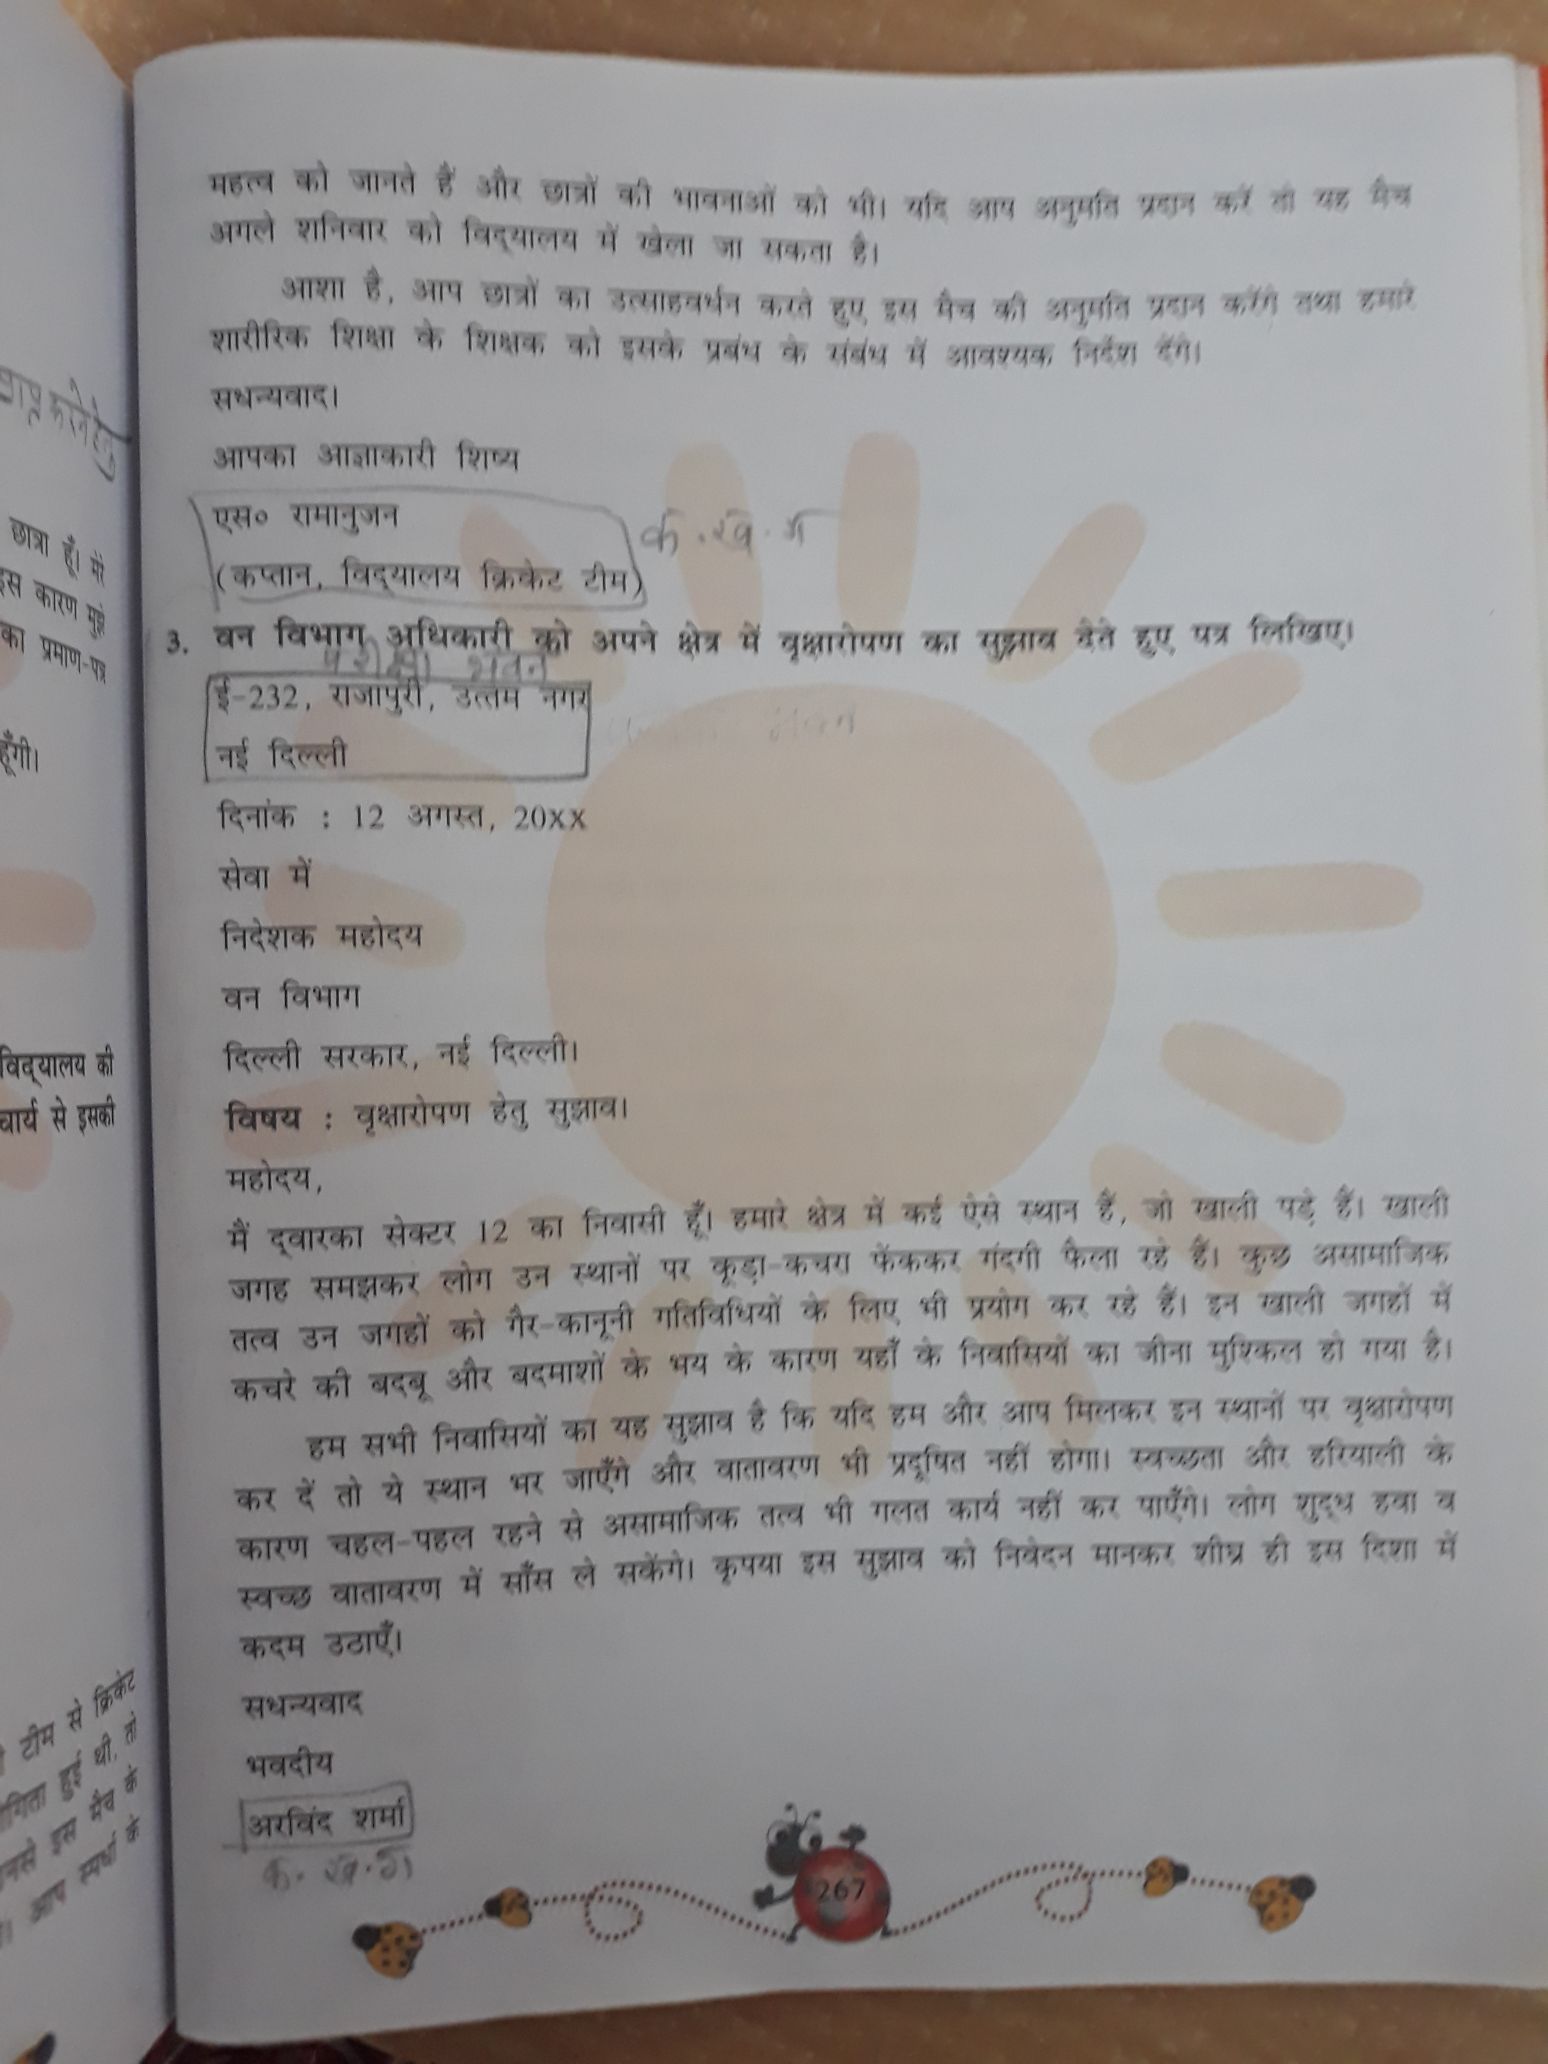 महत्व को जानते हैं और छात्रों की भावनाओं को भी। यदि आप अनुमति प्रदान करें तो यह मैच
अगले शनिवार को विद्यालय में खेला जा सकता है।
आशा है, आप छात्रों का उत्साहवर्धन करते हुए इस मैच की अनुमति प्रदान करेंगे तथा हमारे
शारीरिक शिक्षा के शिक्षक को इसके प्रबंध के संबंध में आवश्यक निर्देश देंगे।
सधन्यवाद।
आपका आज्ञाकारी शिष्य
एस० रामानुजन
क.ख.ग
(कप्तान, विद्यालय क्रिकेट टीम)
3. वन विभाग अधिकारी को अपने क्षेत्र में वृक्षारोपण का सुझाव देते हुए पत्र लिखिए।
परीक्षा भवन
ई-232, राजापुरी, उत्तम नगर
नई दिल्ली
दिनांक : 12 अगस्त, 20xx
सेवा में
निदेशक महोदय
वन विभाग
दिल्ली सरकार, नई दिल्ली।
विषय : वृक्षारोपण हेतु सुझाव।
महोदय,
मैं द्वारका सेक्टर 12 का निवासी हूँ। हमारे क्षेत्र में कई ऐसे स्थान हैं, जो खाली पड़े हैं। खाली
जगह समझकर लोग उन स्थानों पर कूड़ा-कचरा फेंककर गंदगी फैला रहे हैं। कुछ असामाजिक
तत्व उन जगहों को गैर-कानूनी गतिविधियों के लिए भी प्रयोग कर रहे हैं। इन खाली जगहों में
कचरे की बदबू और बदमाशों के भय के कारण यहाँ के निवासियों का जीना मुश्किल हो गया है।
हम सभी निवासियों का यह सुझाव है कि यदि हम और आप मिलकर इन स्थानों पर वृक्षारोपण
कर दें तो ये स्थान भर जाएँगे और वातावरण भी प्रदूषित नहीं होगा। स्वच्छता और हरियाली के
कारण चहल-पहल रहने से असामाजिक तत्व भी गलत कार्य नहीं कर पाएँगे। लोग शुद्ध हवा व
स्वच्छ वातावरण में साँस ले सकेंगे। कृपया इस सुझाव को निवेदन मानकर शीघ्र ही इस दिशा में
कदम उठाएँ।
सधन्यवाद
भवदीय
अरविंद शर्मा
क.ख.ग
267
करने हेतु
छात्रा हूँ। मेरे
इस कारण मुझे
का प्रमाण-पत्र
हूँगी।
विद्यालय की
चार्य से इसकी
टीम से क्रिकेट
हुई थी, तो
इस मैच के
आप स्पर्धा के